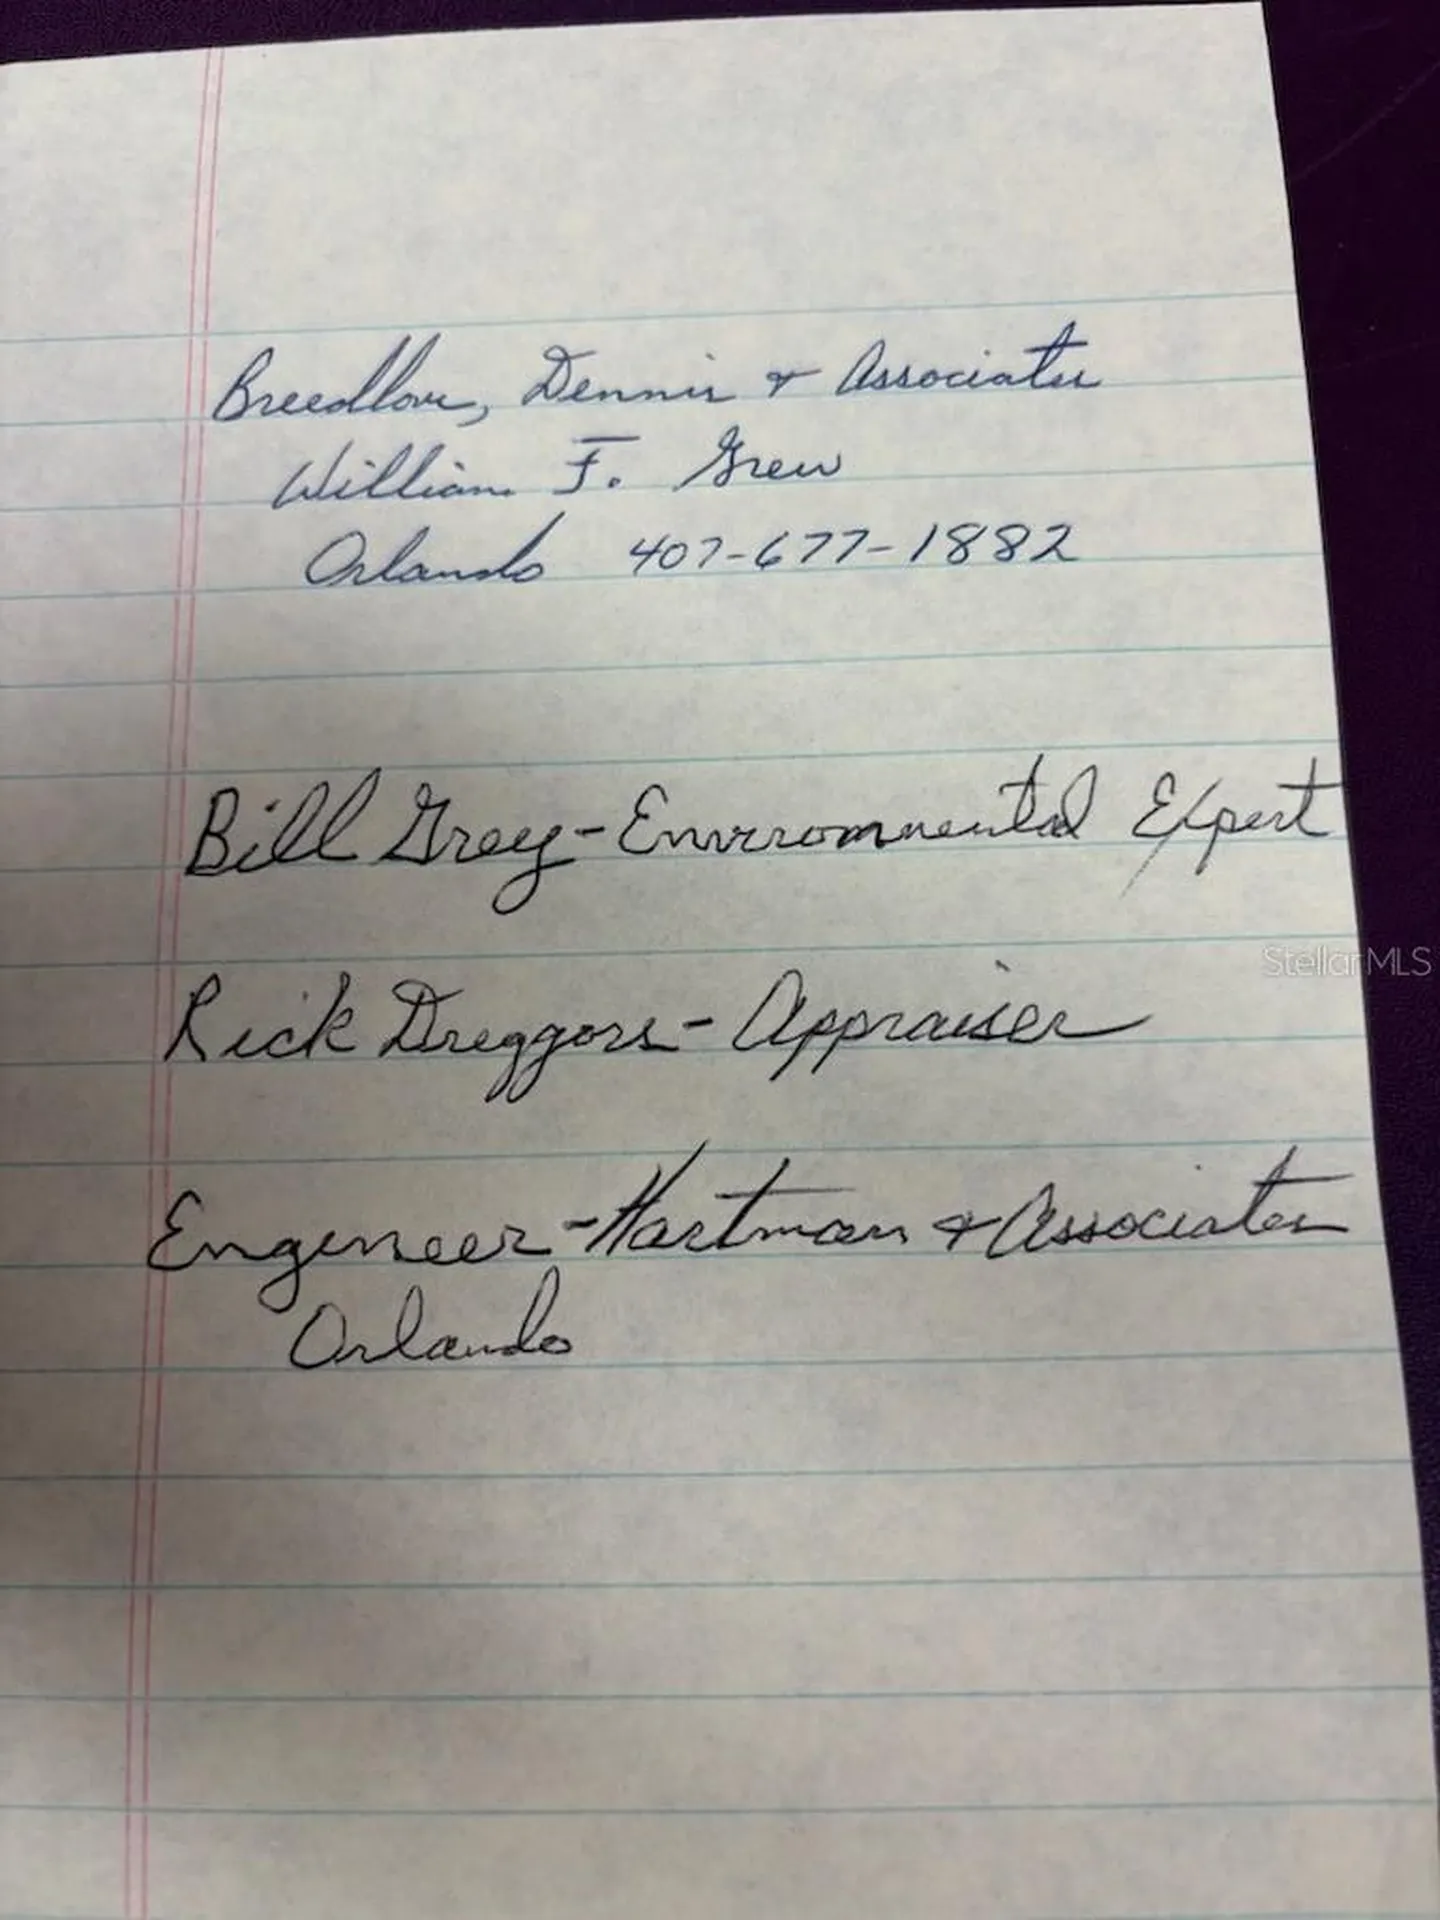 Breedlove, Dennis & Associates
William F. Grew
Orlando 407-677-1882
Bill Grey - Environmental Expert
StellarMLS
Rick Dreggors - Appraiser
Engineer - Hartman & Associates
Orlando